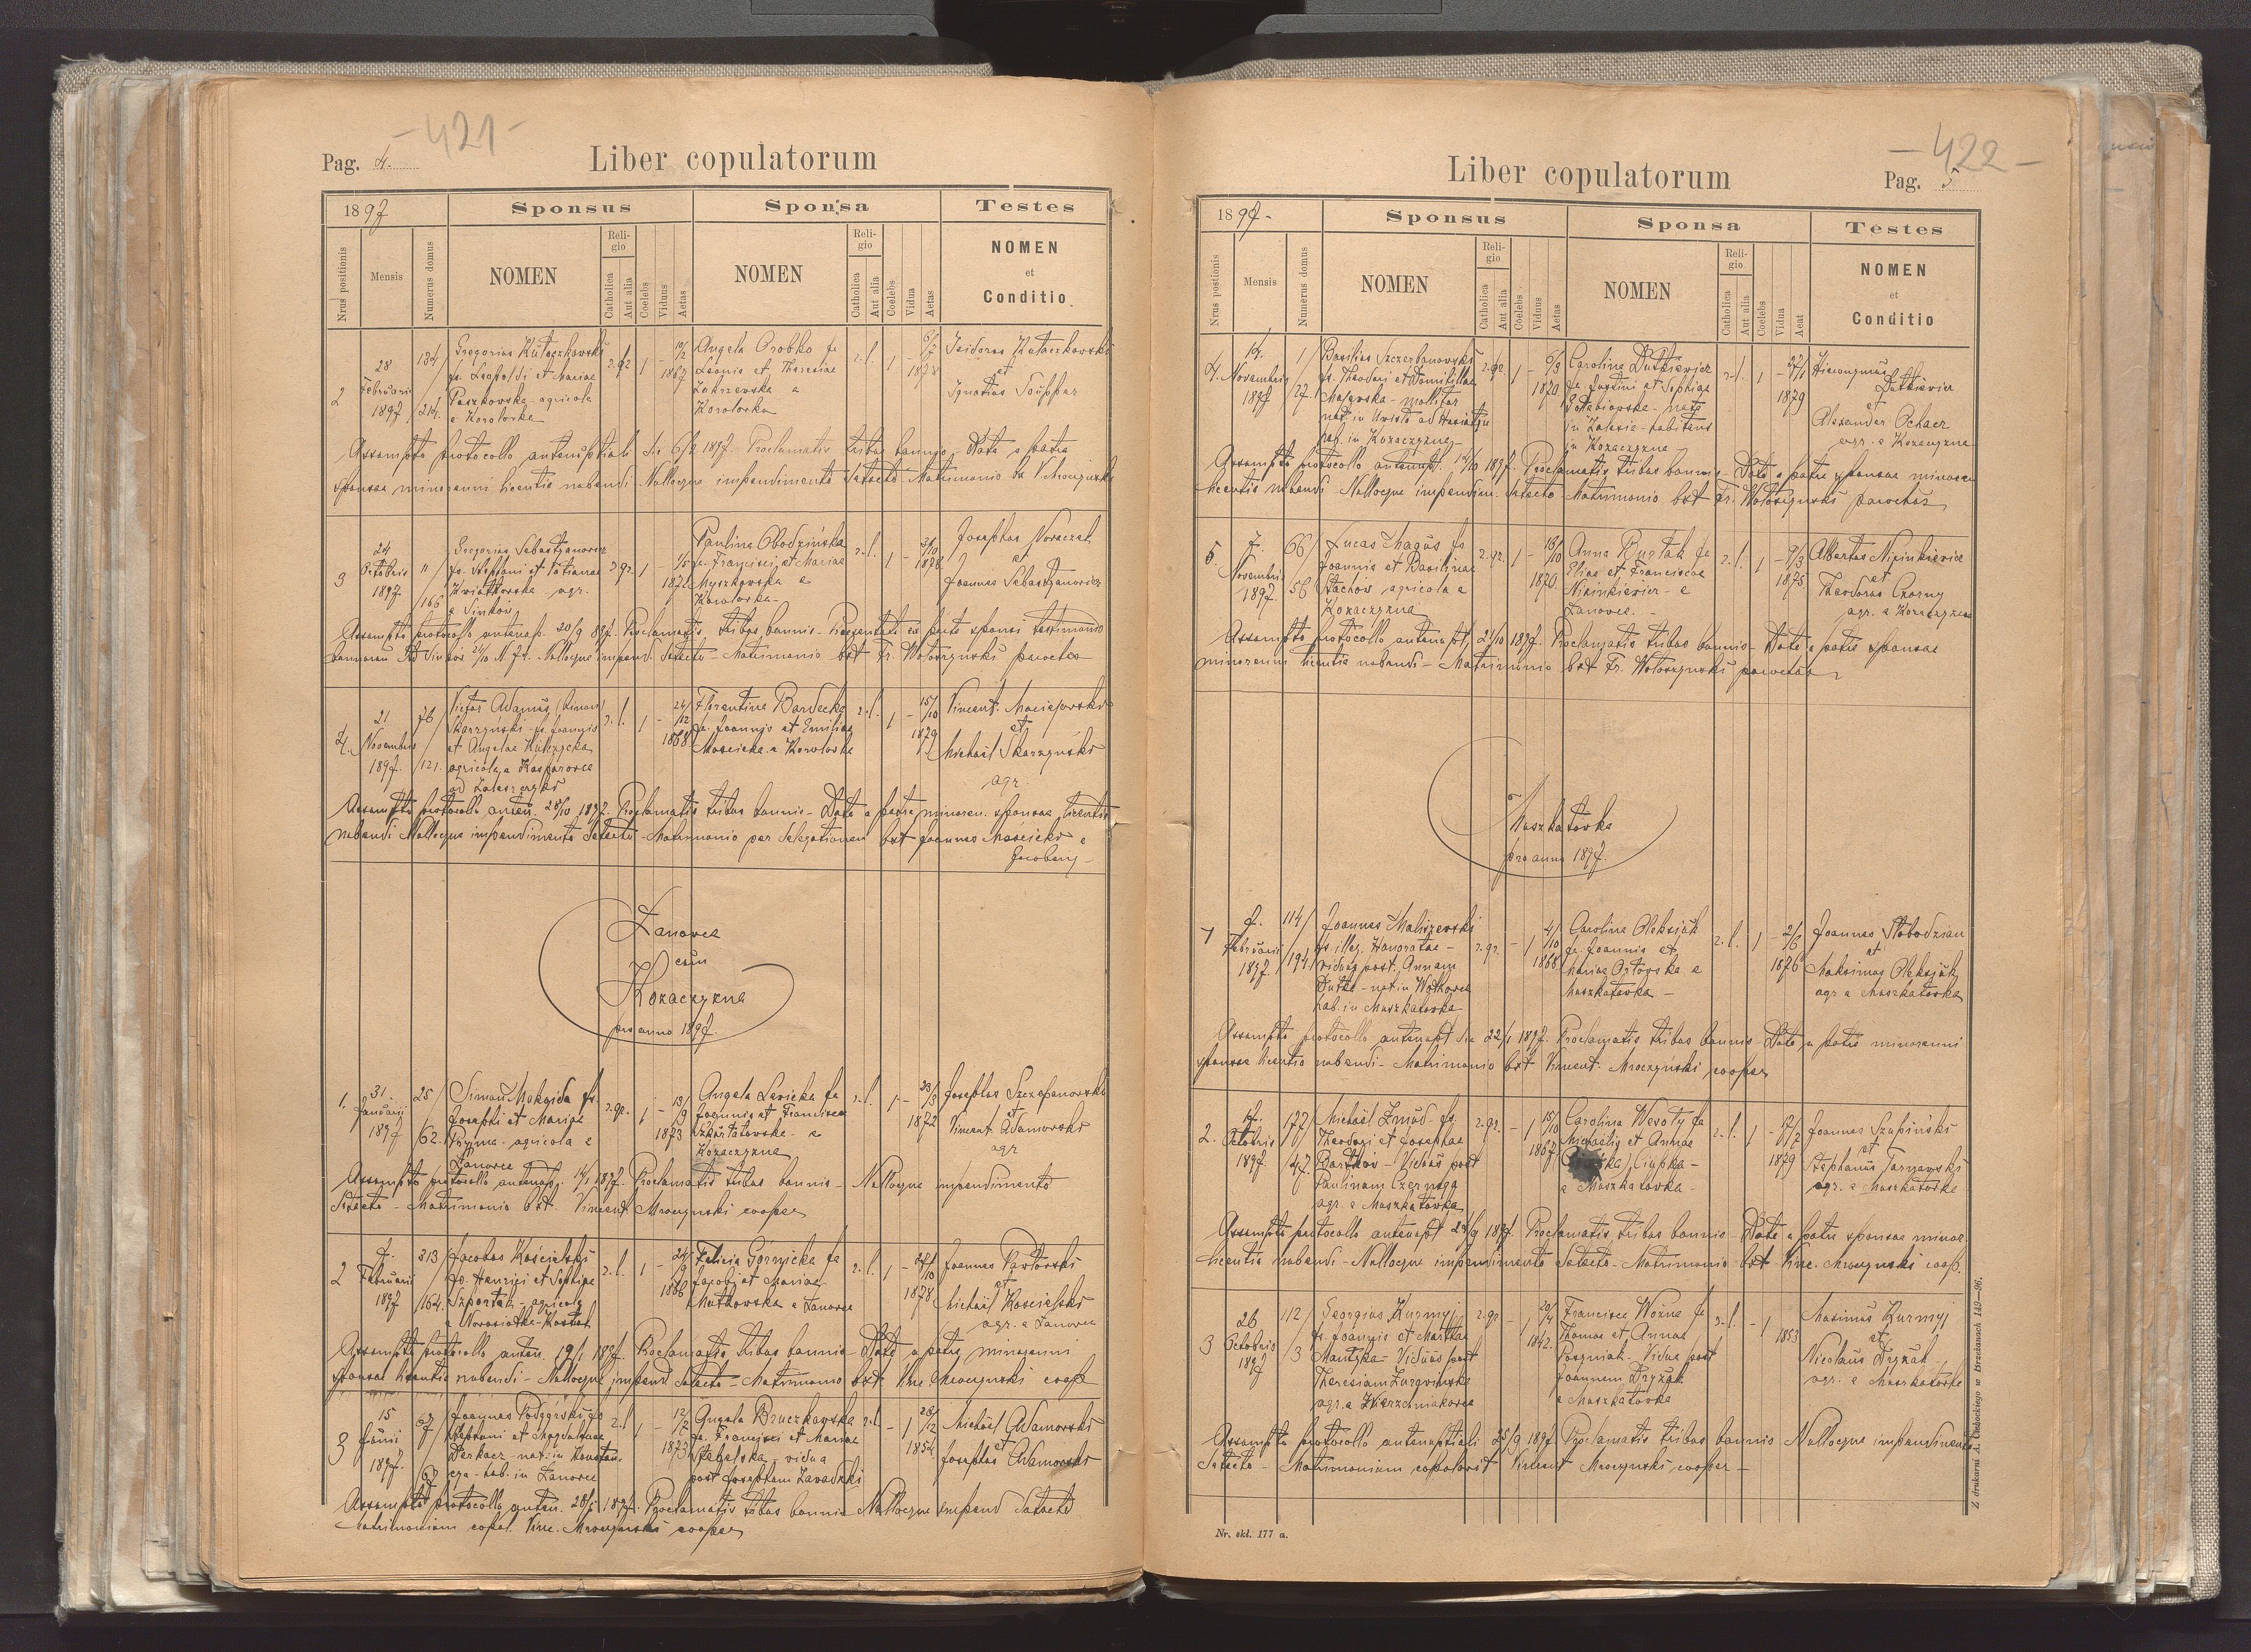 - 421 -
Pag. 4.
Liber copulatorum
1897
Sponsus
Sponsa
Testes
Nrus positionis
Mensis
Numerus domus
NOMEN
Religio
Catholica
Aut alia
Coelebs
Viduus
Aetas
NOMEN
Religio
Catholica
Aut alia
Coelebs
Vidua
Aetas
NOMEN
et
Conditio
2
28
Februarii
1897
134/
/214.
Gregorius Kułaczkowski
fs. Leopoldi et Mariae
Paszkowska - agricola
e Korolówka
r.gr.
1
-
10/2
1867
Angela Orobko fa
Leonis et Theresiae
Zakrzewska e
Korolowka
r.l.
1
-
6/7
1878
Isidorus Kułaczkowski
et
Ignatius
Assumpto protocollo antenuptiali die 6/2 1897. Proclamatis tribus bannis - Data a patre
sponsae minorenni licentia nubendi - Nulloque impedimento detecto - Matrimonio bx V. Mroczyński
3
24
Octobris
1897
"
/166
Gregorius Sebastyanowicz
fs. Stephani et Tatianae
Kwiatkowska agr.
e Sinków
r.gr.
1
-
1/5
1872
Paulina Obodzińska
fa. Francisci et Mariae
Myszkowska e
Korolowka -
r.l.
1
-
1878
Josephus
et
Joannes Sebastyanowicz
Assumpto protocollo antenup. 20/9 897. Proclamatis tribus bannis - Praesentato ex parte sponsi testimonio
bannorum Dd Sinków 24/10 N. 72. - Nulloque impend. detecto - Matrimonio bxt Fr. Wołoszynski parochus
4.
21
Novembris
1897.
76/
/121.
Victor Adamus (binom)
Skarzyński - fs. Joannis
et Angelae Kulczycka
agricola e Kasparowce
ad Zaleszczyki
r.l.
1
-
24/12
1868
Florentina Bardecka
fa. Joannis et Emiliae
Mosiecka e Korolowka
r.l.
1
-
15/10
1879
Vincent. Maciejowski
et
Michaël Skarzyński
agr.
Assumpto protocollo anten. 28/10 1897. Proclamatis tribus bannis - Data a patre minoren. sponsae licentia
nubendi Nulloque impendimento detecto - Matrimonio per delegationem bxt Joannes Mosiecki e
Łanowce
cum
Kozaczyzna
pro anno 1897.
1.
31.
Januarii
1897
25/
/62.
Simon Makoida fs.
Josephi et Mariae
Pryjma - agricola e
Łanowce
r.gr.
1
-
13/9
1873
Angela Lewicka fa
Joannis et Francisca
Szkarłatowska - e
Kozaczyzna
r.l.
1
-
23/3
1872
Josephus Szczepanowski
et
Vincent. Adamowski
agr
Assumpto protocollo antenup. 14/1 1897. Proclamatis tribus bannis - Nulloque impendimento
detecto - Matrimonio bxt. Vincent. Mroczynski cooper
2
7.
Februarii
1897
313/
/164.
Jacobus Kościelski
fs. Henrici et Sophiae
Szportak - agricola
e Nowosiołka-Kostiuk
r.l.
1
-
24/9
1866
Felicia Górnicka fa
Jacobi et Mariae
Mutkowska e Łanowce
r.l.
1
-
28/10
1878
Joannes Pawłowski
et
Michaël Kościelski
agr. e Łanowce
Assumpto protocollo anten. 19/1 1897. Proclamatis tribus bannis - Data a patre minorenni
sponsae licentia nubendi - Nulloque impend. detecto - Matrimonio bxt. Vinc. Mroczynski coop
3
15
Junii
1897.
67/
/67
Joannes Podgórski fs
Stephani et Magdalenae
Derkacz - nat. in Konstancya
- hab. in Łanowce
r.l
1
-
12/2
1873
Angela Bruczkowska
fa. Francisci et Mariae
Stebelska - vidua
post Josephum Zawadzki
r.l.
-
1
26/12
1854
Michaël Adamowski
et
Josephus Adamowski
Assumpto protocollo anten. 28/5 1897. Proclamatis tribus bannis Nulloque impend. detecto
Matrimonium copul. Vinc. Mroczynski cooper
- 422 -
Liber copulatorum
Pag. 5
1897.
Sponsus
Sponsa
Testes
Nrus postionis
Mensis
Numerus domus
NOMEN
Religio
Catholica
Aut alia
Coelebs
Viduus
Aetas
NOMEN
Religio
Catholica
Aut alia
Coelebs
Vidua
Aeat
NOMEN
et
Conditio
4.
14.
Novembris
1897
1/
/27.
Basilius Szczerbanowski
fs. Theodori et Domitillae
Majewska - molitor
nat. in Uwisla ad Husiatyn
hab. in Kozaczyzna -
r.gr.
1
-
6/3
1870
Carolina Dutkiewicz
fa. Justini et Sophiae
Gołębiowska - nata
in Zalesie - habitans
in Kozaczyzna
r.l.
1
-
27/1
1879
Hieronymus
Dutkiewicz
et
Alexander Ochacz
agr. e Kozaczyzna
Assumpto protocollo antenupt. 14/10 1897. Proclamatis tribus bannis - Data a patre sponsae minoren
licentia nubendi Nulloque impendim. detecto - Matrimonio bxt Fr. Wołoszynski parochus
5.
7.
Novembris
1897.
66/
/56
Lucas Magus fs
Joannis et Basilissae
Stachów agricola e
Kozaczyzna
r.gr.
1
-
18/10
1870
Anna Rustak fa
Eliae et Franciscae
Niżinkiewicz - e
Łanowce. -
r.l.
1
-
9/3
1875
Albertus Niżinkiewicz
et
Theodorus Czorny
agr. e Kozaczyzna
Assumpto protocollo antenupt 21/10 1897. Proclamatis tribus bannis - Data a patre sponsae
minorenni licentia nubendi - Matrimonio bxt Fr. Wołoszynski parochus
Muszkatówka
pro anno 1897.
1
7.
Februarii
1897.
114/
/194.
Joannes Maliszewski
fs. illeg. Honoratae -
viduus post. Annam
Dutka - nat. in Wołkowce
hab. in Muszkatowka
r.gr.
-
1
4/10
1868
Carolina Oleksiuk
fa. Joannis et
Mariae Ostowska e
Muszkatowka -
r.l.
1
-
2/6
1876
Joannes Słobodzian
et
Maksimus Oleksiuk
agr. e Muszkatowka
Assumpto protocollo antenupt die 22/1 1897. Proclamatis tribus bannis - Data a patre minorenni
sponsae licentia nubendi - Matrimonio bxt Vincent. Mroczyński cooper
2.
17.
Octobris
1897.
177/
/47
Michaël Zmud fs.
Theodozi et Josephae
Bartków - Viduus post
Paulinam Czernyga
agr. e Muszkatówka
r.gr.
-
1
15/10
1867
Carolina Wesoły fa
Michaelis et Annae
Ciupka -
e Muszkatowka -
r.l.
1
-
17/2
1879
Joannes Szupiński
et
Stephanus Tarnawski
agr. e Muszkatówka
Assumpto protocollo antenupt 24/9 1897. Proclamatis tribus bannis - Data a patre sponsae minor.
licentia nubendi - Nulloque impendimento detecto - Matrimonio bxt Vinc. Mroczynski coop.
3
26
Octobris
1897
112/
/3
Georgius Kurmyj
fs. Joannis et Marthae
Mantyka - Viduus post
Theresiam
agr. e Wierzchniakowce
r.gr
-
1
20/4
1842.
Francisca Woźna fa
Thomae et Annae
Pozniak. Vidua post
Joannem Dryżak
e Muszkatówka
r.l.
-
1
1853
Maximus Kurmyj
et
Nicolaus Dryżak
agr. e Muszkatówka
Assumpto protocollo antenuptiali 25/9 1897. Proclamatis tribus bannis Nulloque impendimento
detecto - Matrimonium copulavit Vincent Mroczynski cooper -
Nr. skł. 177 a.
Z drukarni A. Osbockiego w Brzeżanach 149—96.